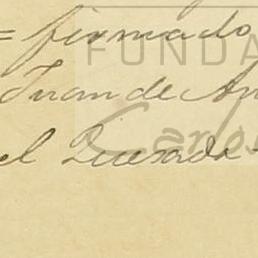 = firmado
FUNDA
Juan de An
Carlos
el Quesada -